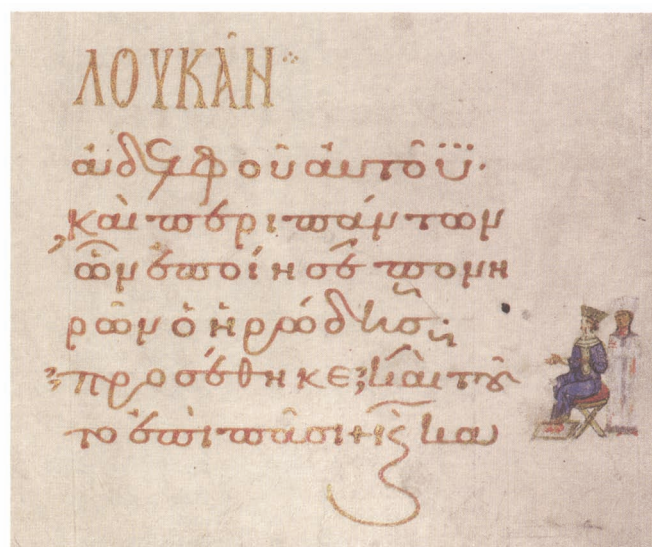 ΛΟΥΚᾺΝ
ἀδελφοῦ ἀυτοῦ·
καὶ περι πάντων
ὧν ἐποίησε πονη
ρῶν ὁ ἡρώδης·
προσέθηκε καὶ τοῦ
το ἐπι πᾶσι ϗ κα